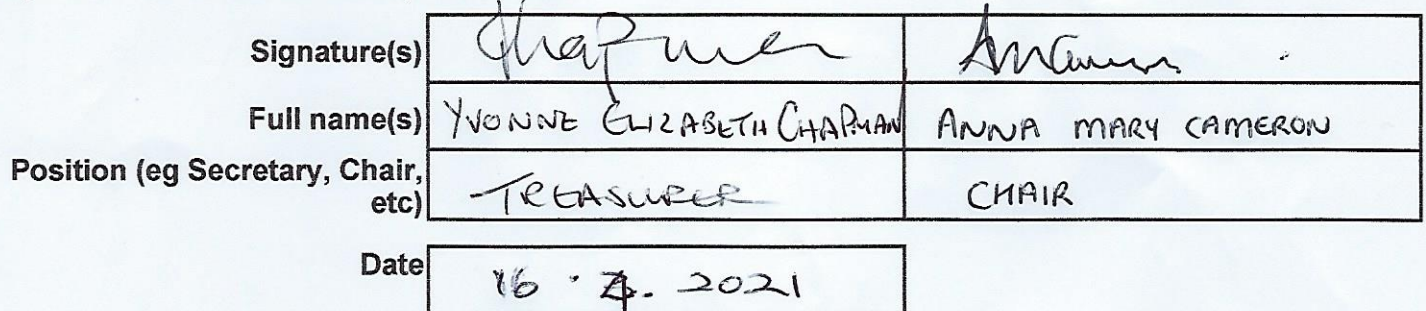 Signature(s) Chapman AMCameron
Full name(s) YVONNE ELIZABETH CHAPMAN ANNA MARY CAMERON
Position (eg Secretary, Chair,
etc) TREASURER CHAIR
Date 16 . 2021